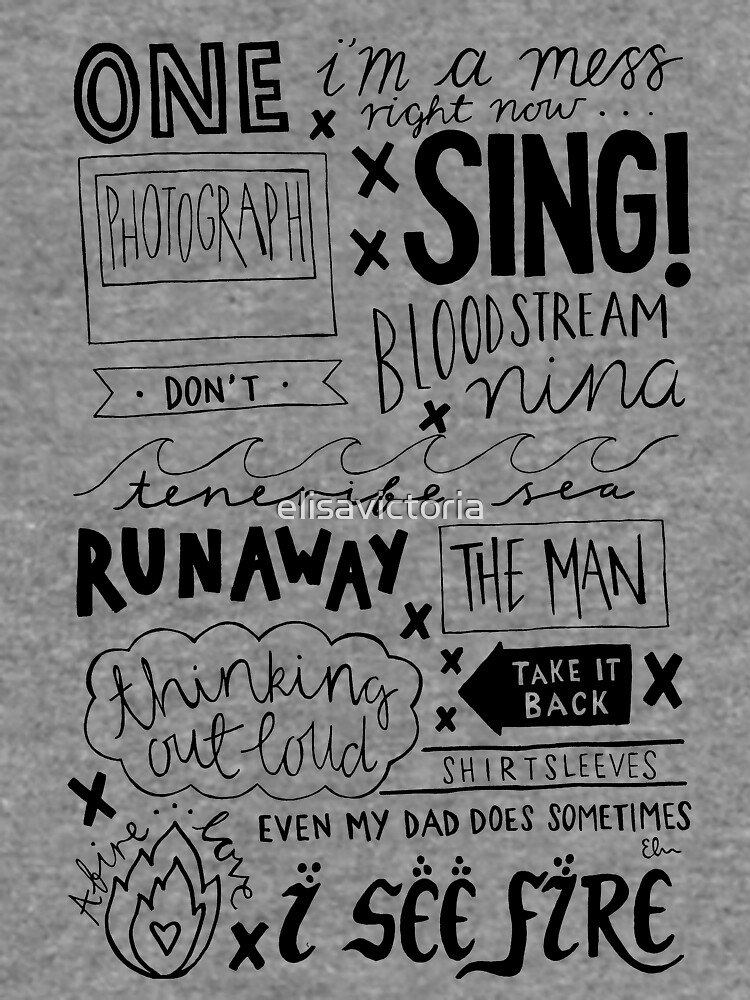 ONE
i'm a mess
right now...
PHOTOGRAPH
SING!
BLOODSTREAM
· DON'T ·
nina
tenerife sea
elisavictoria
RUNAWAY
THE MAN
thinking
out loud
TAKE IT
BACK
SHIRTSLEEVES
EVEN MY DAD DOES SOMETIMES
Afire...love
I SEE FIRE